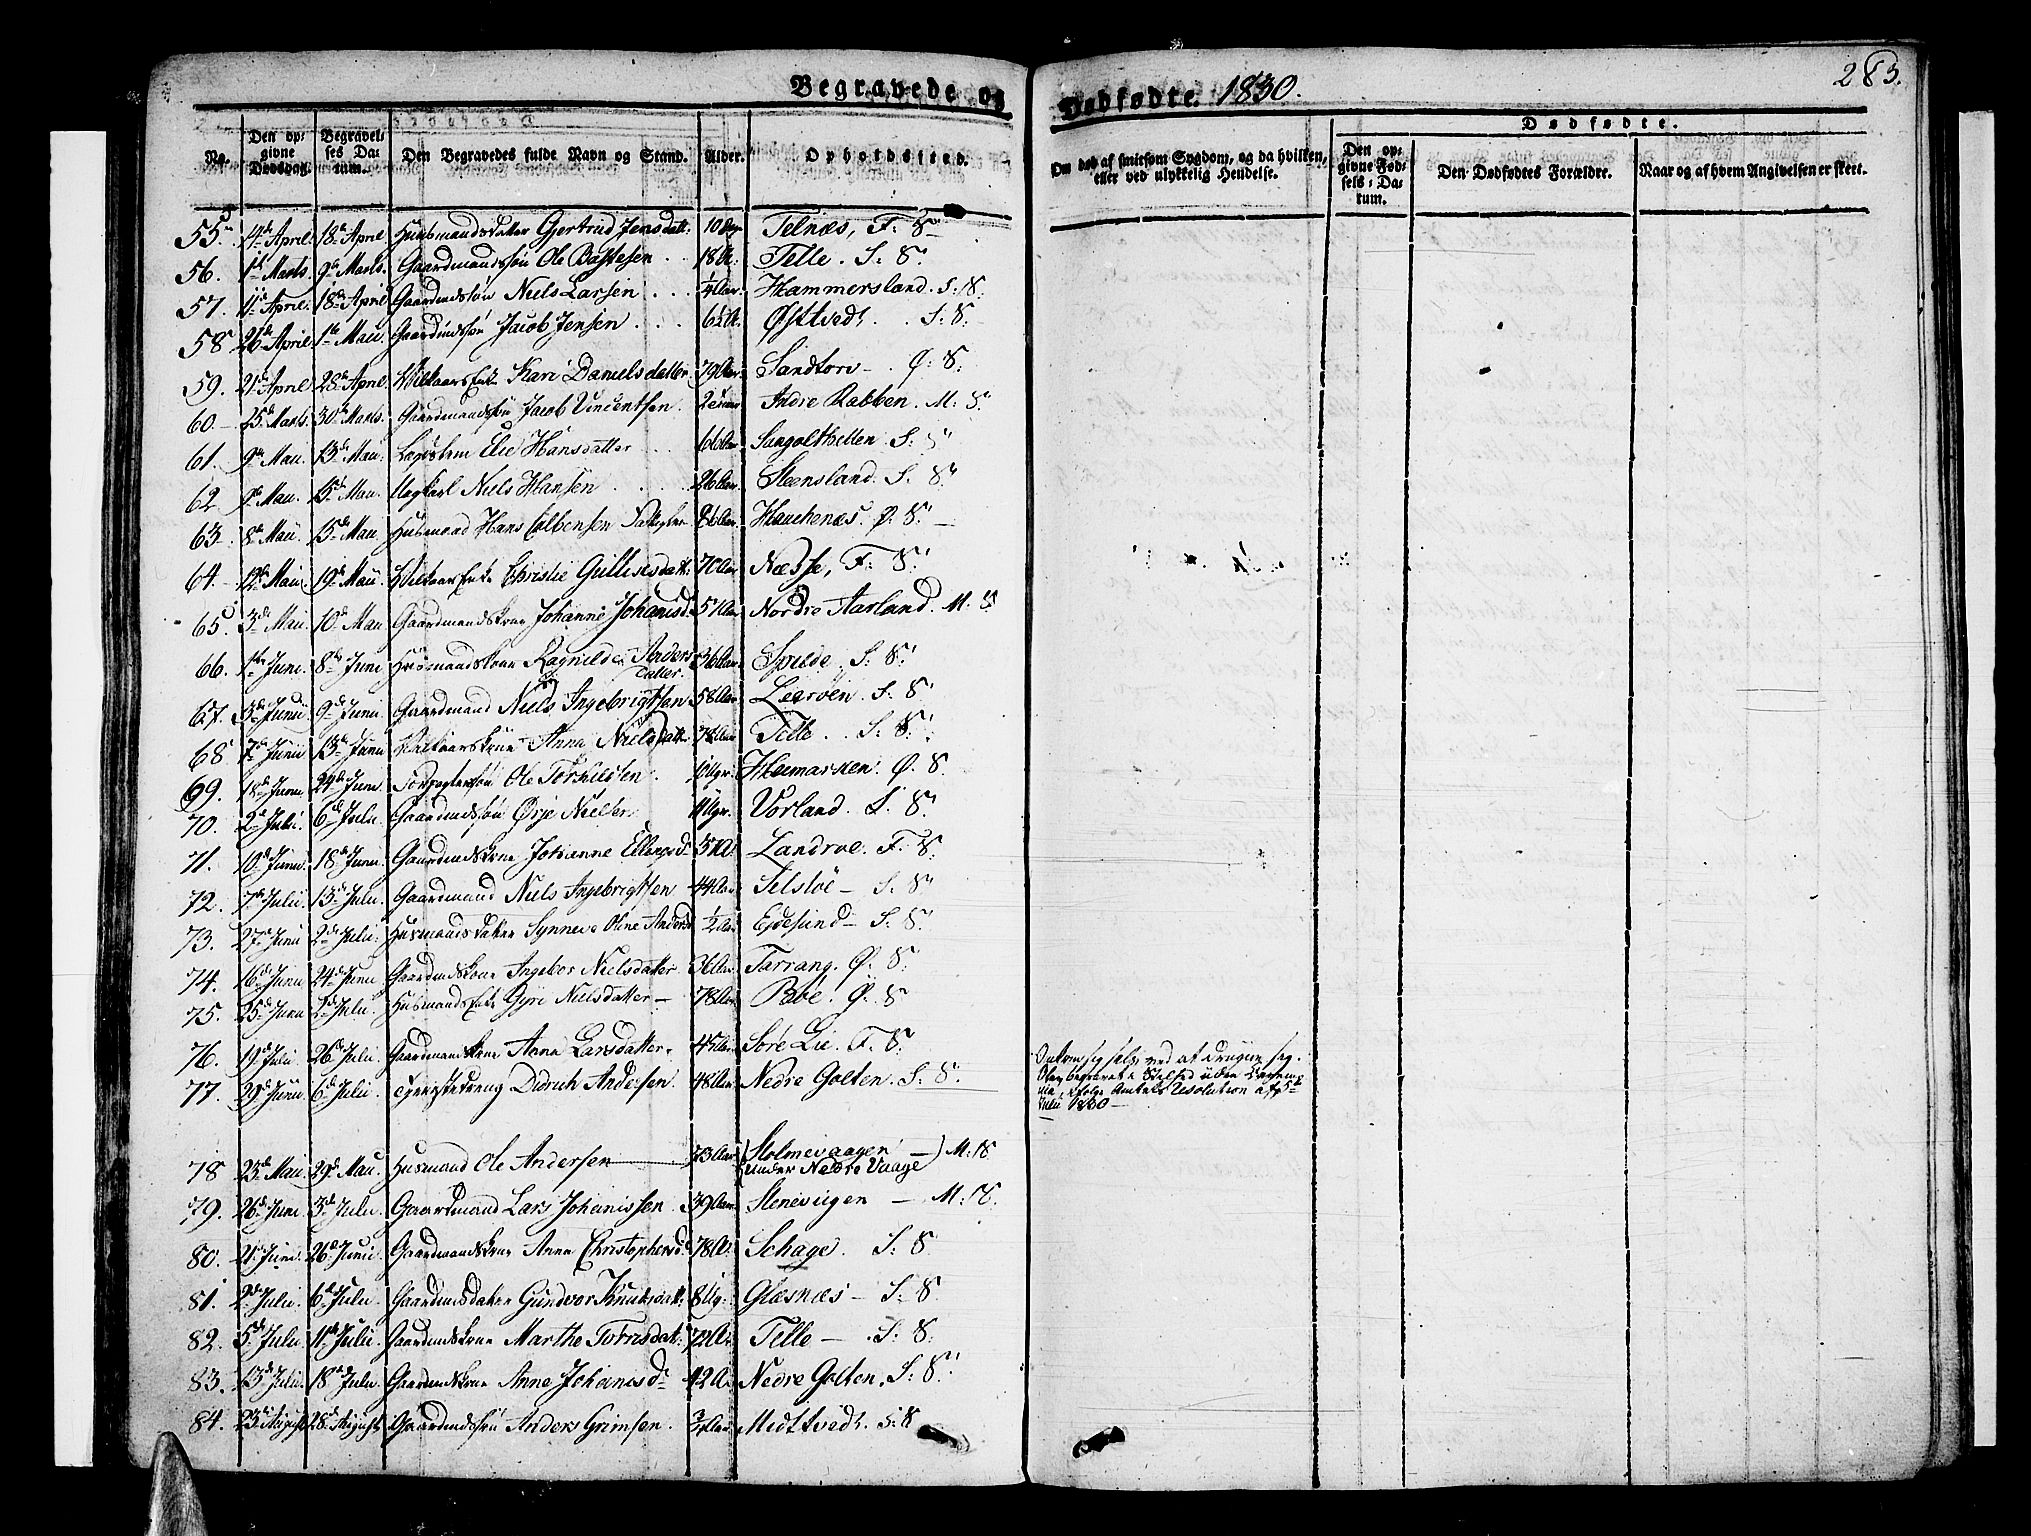 Begravede og
Dødfødte. 1830.
283.
No.
Den opgivne Dødsdag.
Begravelses Datum.
Den Begravedes fulde Navn og Stand.
Alder.
Opholdssted.
Om død af smitsom Sygdom, og da hvilken, eller ved ulykkelig Hendelse.
Dødfødte.
Den opgivne Fødsels-Datum.
Den Dødfødtes Forældre.
Naar og af hvem Angivelsen er skeet.
55. 14de April. 18de April Huusmandsdatter Gjertrud Jensdatt: Telnæs, F: S:
56. 1de Marts. 9de Marts. Gaardmandssøn Ole Bastesen 18 A. Telle. S: S:
57. 11de April. 18de April Gaardmdssøn Niels Larsen 1/4 Aar. Hammersland. S: S:
58 26de April. 1de Maii. Gaardmdssøn Jacob Jensen Østtvedt. S: S:
59. 21de April 28de April Kari Danielsdatter 79 Aar. Sandtorv. Ø: S:
60. 25de Marts. 30de Marts. Gaardmandssøn Jacob Vincentsen. Indre Rabben. M: S:
61. 9de Maii. 13de Maii. Elie Hansdatter 66 Aar. S: S:
62 9de Maii. 15de Maii. Ungkarl Niels Hansen 26 Aar. Steensland. S: S:
63. 8de Maii 15de Maii. Husmand Hans Hauchenæs. Ø: S:
64. 12de Maii. 19de Maii Christie Gullisesdatt: 70 Aar Næsse, F: S:
65. 3de Maii. 10de Maii Gaardmandskone Johanne Johanisd. 57 Aar Nordre Aarland. M: S:
66. 1de Juni. 8de Juni Ragnilde Andersdatter. 36 Aar. Spilde. S: S:
67. 3de Junii 9de Junii. Gaardmand Niels Ingebrigtsen 58 Aar Leerøen. S: S:
68 7de Junii 13de Junii Anna Nielsdatter Telle. S: S:
69. 18de Junii 24de Junii. Ole Torkilssen. 10 Ugr. Heimarken. Ø: S.
70. 2de Julii. 6de Julii. Gaardmdssøn Vorland. S: S:
71. 10de Junii 18de Junii. Gaardmdskone Johanne Ellingsd. Landroe. F: S:
72. 7de Julii 13de Julii. Gaardmand Niels Ingebrigtsen 44 Aar Selstøe S: S:
73. 27de Junii 2de Julii. Husmandsdatter Synneve Oline Andersd 1/2 Aar Eidesund S: S:
74. 16de Junii 24de Junii Gaardmdskone Ingebor Nielsdatter 36 Aar. Tarrang. Ø: S:
75. 25de Junii 2de Julii. Husmands Enke Gyri Nielsdatter 78 Aar Ø: S
76. 19de Julii 26de Julii. Gaardmandskone Anna Larsdatter. 45 Aar. Søre Lie. F. S:
77. 29de Junii 6de Julii Didrich Andersen. 48 Aar Nedre Golten. S: S.
Omkom sig selv ved at drugne sig.
Blev begravet i Stilhed uden Ceremonie, ifølge Amtets Resolution af 5de Julii 1830
78 23de Maii 29de Maii. Husmand Ole Andersen 73 Aar. (Holmevaagen under Nedre Vaage) M: S
79. 26de Juni 3de Julii. Gaardmand Lars Johanissen. 39 Aar. Stenevigen M: S.
80. 21de Junii. 26de Junii Gaardmandskone Anna Christophersd. 78 A. Schage. S: S
81. 2de Julii 6de Julii Gaardmdsdatter Gundvor Knutsdatt: 8 Ug: Glæsnæs S: S
82. 5de Julii. 11de Julii. Gaardmdskone Marthe Tobrisdat: 72 A. Telle S: S:
83. 13de Julii. 18de Julii. Gaardmdskone Anne Johanisd 42 A. Nedre Golten. S: S:
84. 23de August 28de August Gaardmdssøn Anders Grimsen. 3/4 Aar Midttvedt. S: S